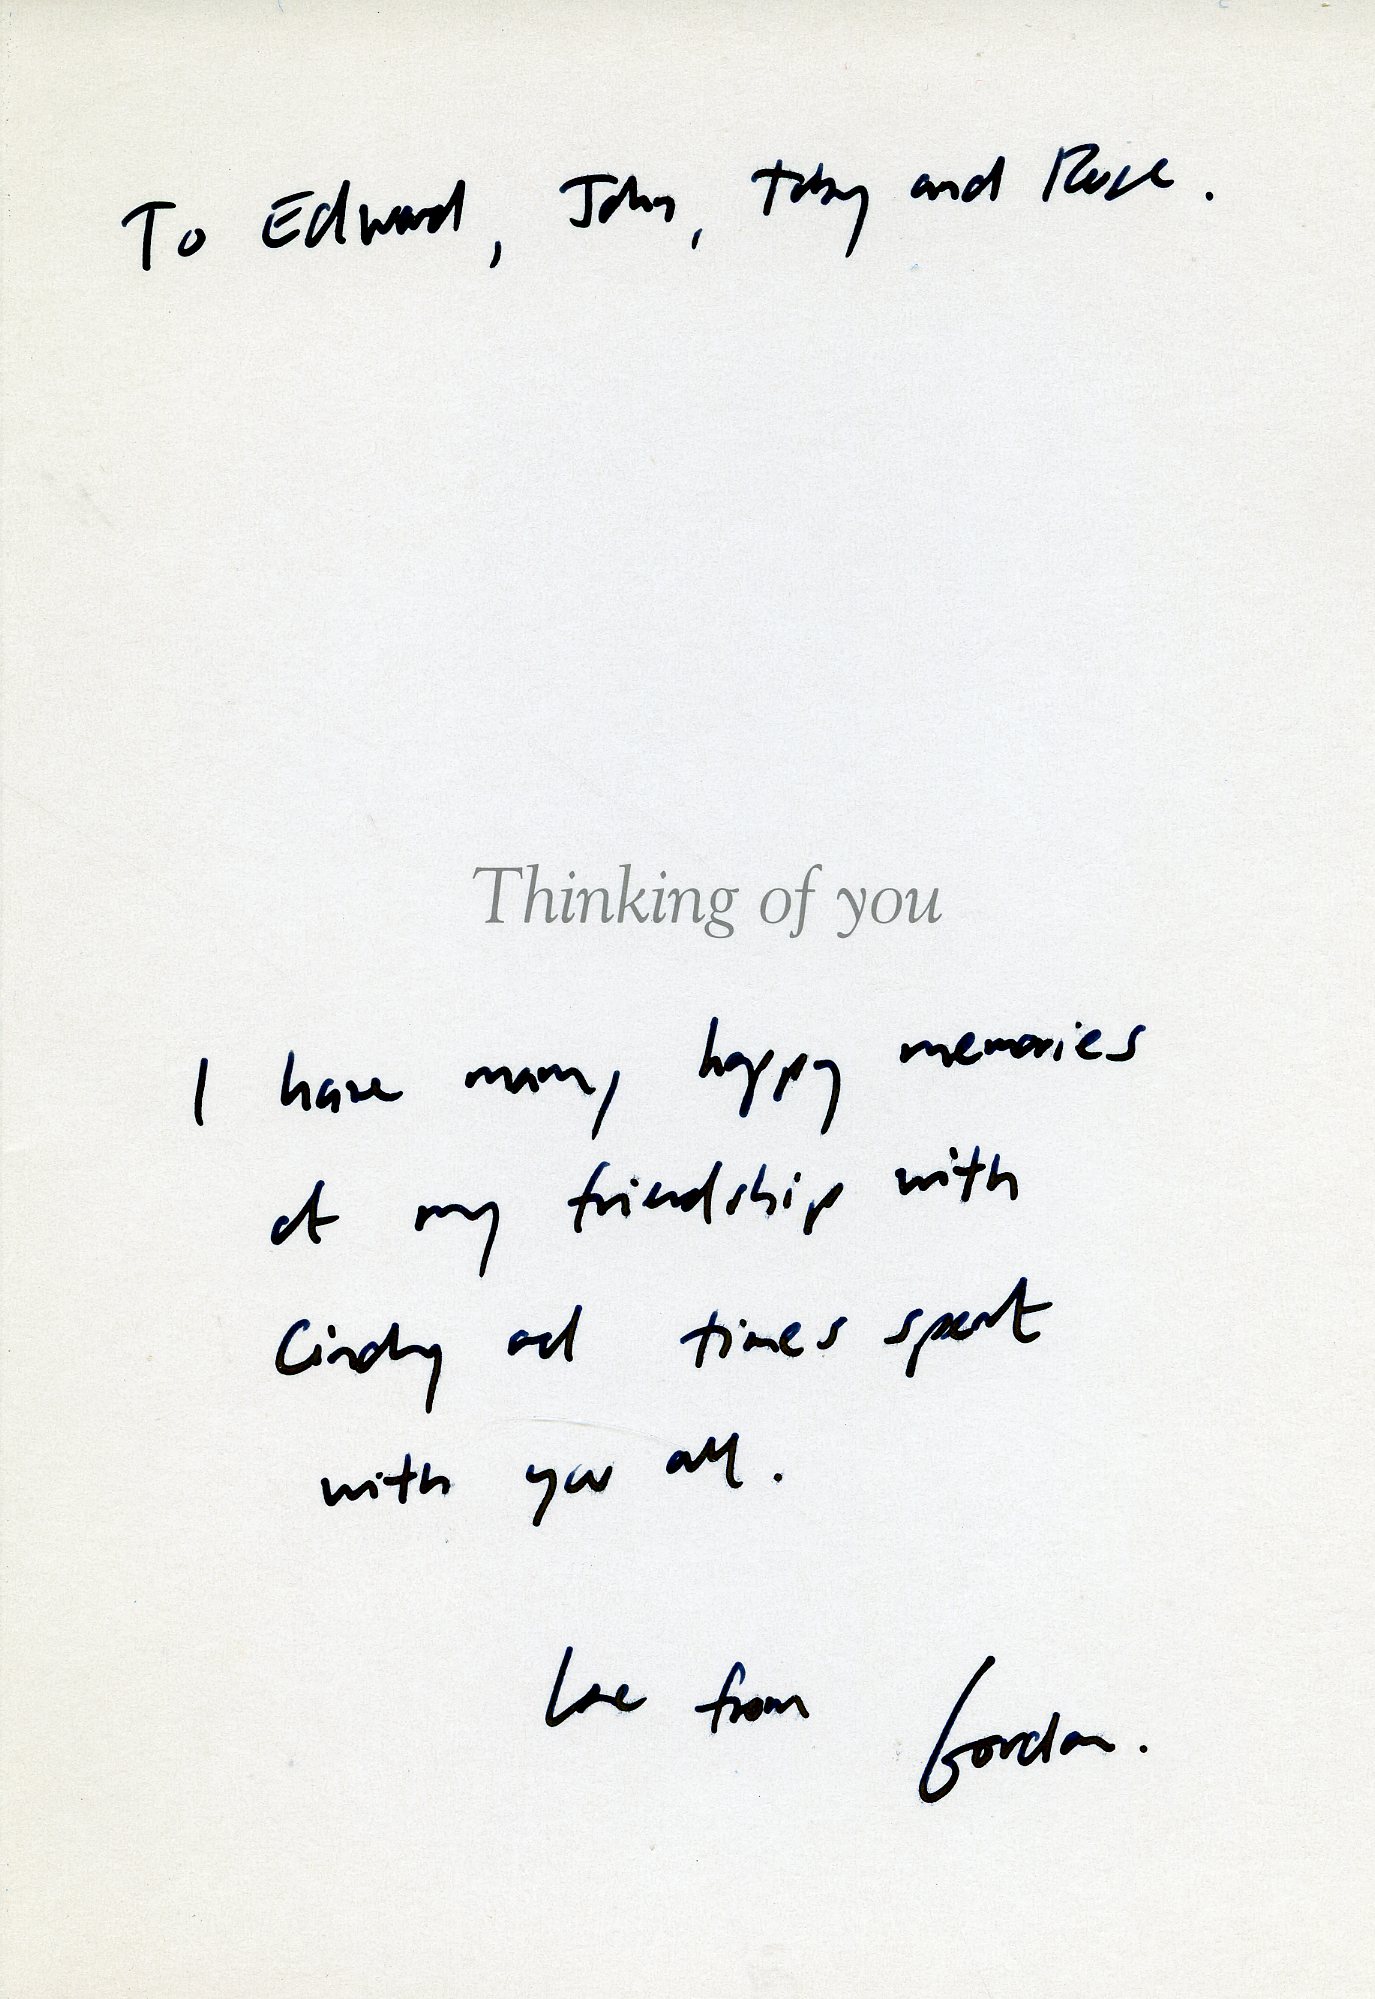 To Edward, John, Toby and Rose.
Thinking of you
I have many happy memories
of my friendship with
Cindy and times spent
with you all.
Love from Gordon.